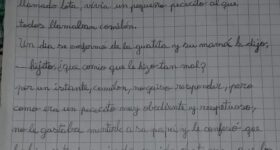 llamado lota, vivía un pequeño pececito al que
todos llamaban comilón.
Un día se enfermo de la guatita y su mamá le dijo,
- hijito ¿Qué comió que le hizo tan mal?
por un instante, comilón, no quiso responder, pero
como era un pececito muy obediente y respetuoso,
no le gustaba mentirle a su papá y le confesó que